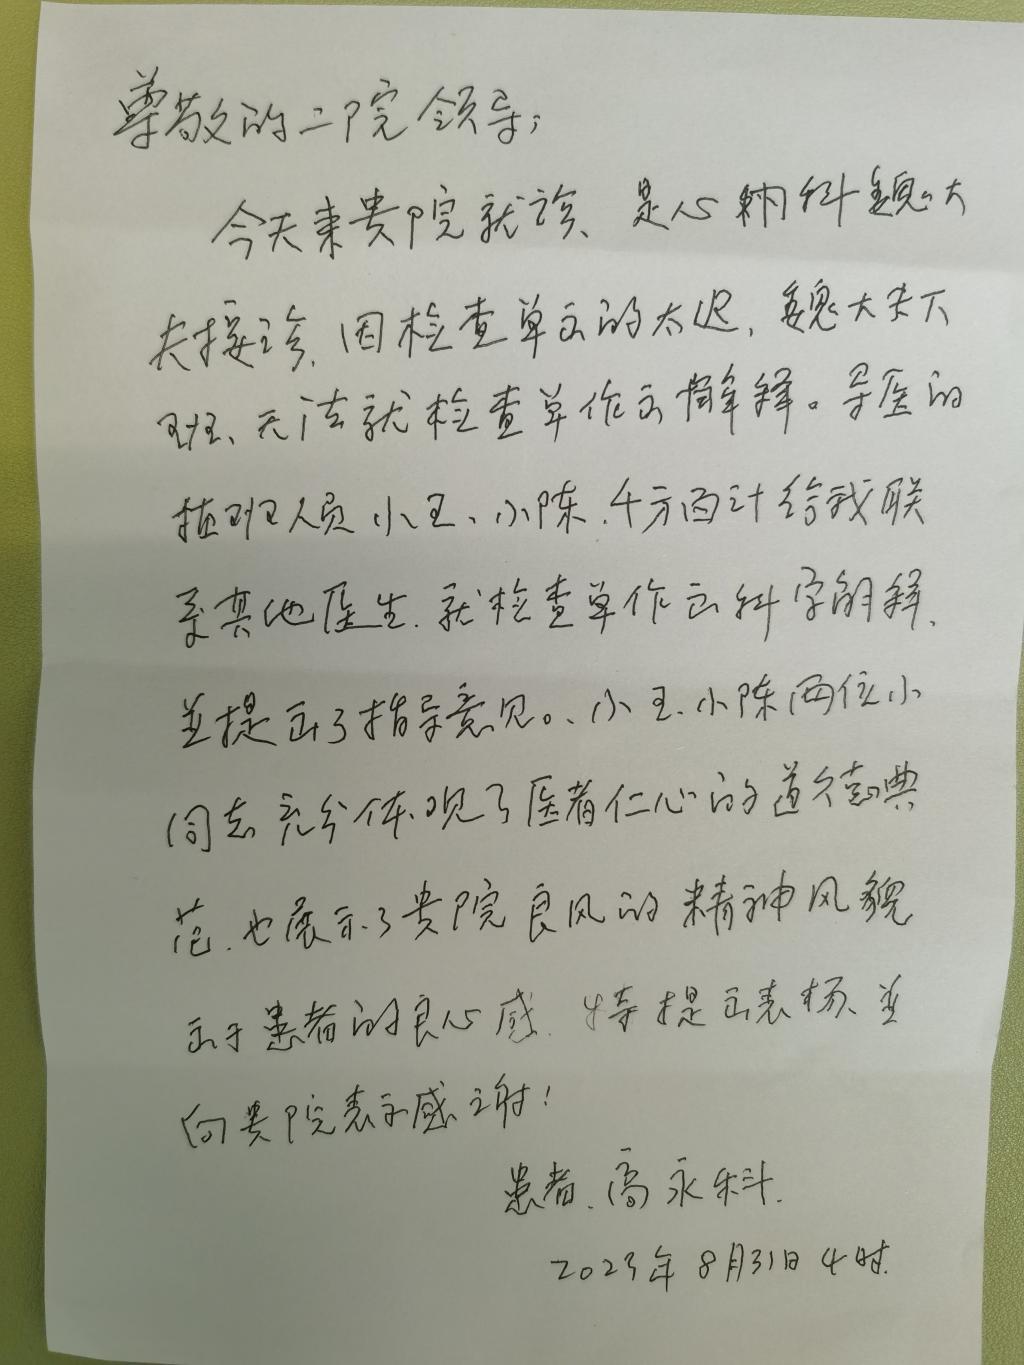 尊敬的二院领导；
今天来贵院就诊、是心内科魏大
夫接诊，因检查单出的太迟，魏大夫下
班、无法就检查单作出解释。导医的
值班人员小王、小陈，千方百计给我联
系其他医生，就检查单作出科学解释、
并提出了指导意见。、小王、小陈两位小
同志充分体现了医者仁心的道德典
范，也展示了贵院良风的精神风貌
出于患者的良心感，特提出表扬、并
向贵院表示感谢！
患者、高永科.
2023年8月31日4时.